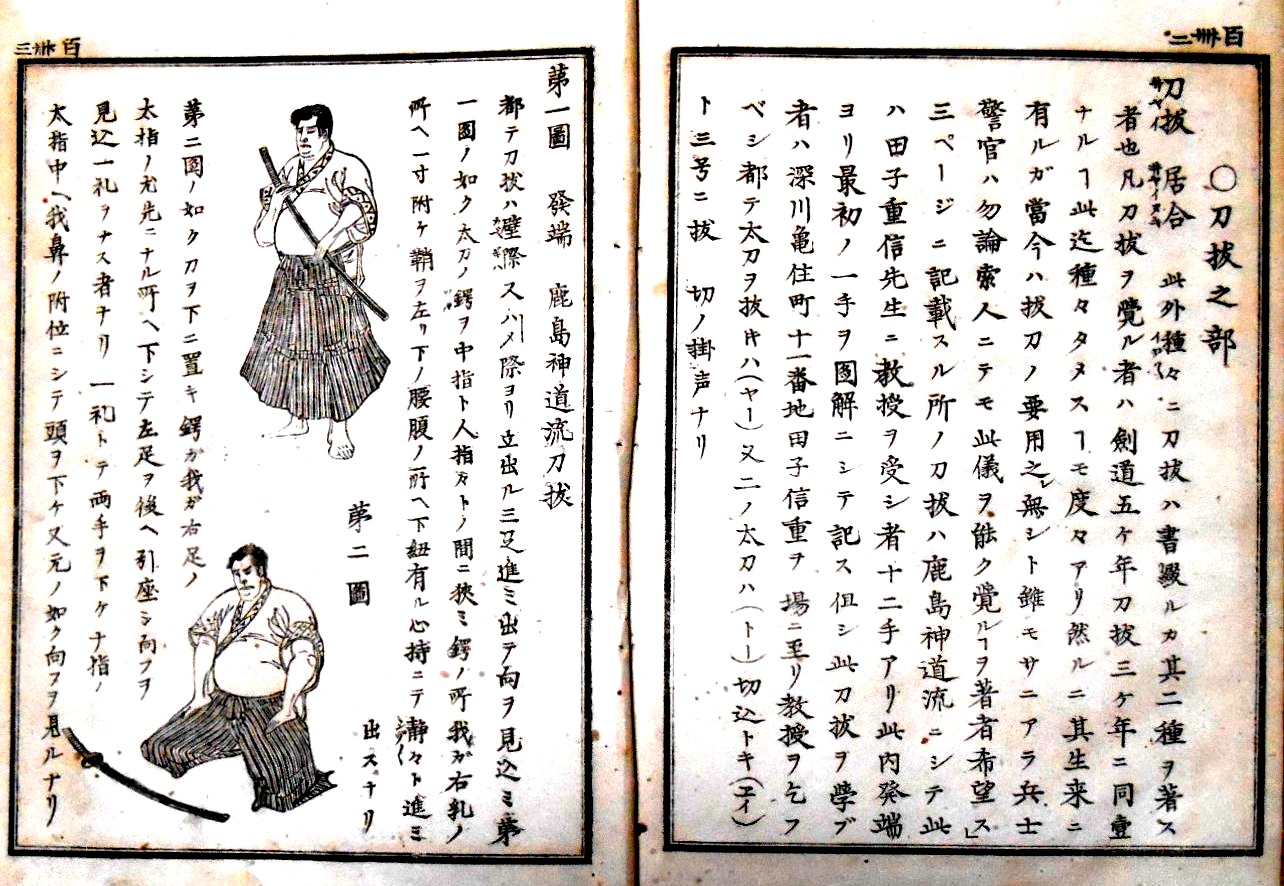 百卅二
〇刀拔之部
刀拔 居合 此外種々ニ刀拔ハ書綴ルカ其二種ヲ著ス
者也凡刀拔ヲ覺ル者ハ劍道五ケ年刀拔三ケ年ニ同
ナルヿ此迄種々タヌスヿモ度々アリ然ルニ其生来ニ
有ルガ當今ハ拔刀ノ要用之レ無シト雖モサニアラ兵士
警官ハ勿論索人ニテモ此儀ヲ能ク覺ルヿヲ著者希望ス」
三ページニ記載スル所ノ刀拔ハ鹿島神道流ニシテ此
ハ田子重信先生ニ教授ヲ受シ者十二手アリ此内発端
ヨリ最初ノ一手ヲ圖解ニシテ記ス但シ此刀拔ヲ學ブ
者ハ深川亀住町十一番地田子信重ヲ場ニ至リ教授ヲ乞フ
ベシ都テ太刀ヲ拔キハ(ヤー)又二ノ太刀ハ(トー)切込トキ(エイ)
ト三号ニ拔 切ノ掛声ナリ
百卅三
第一圖 發端 鹿島神道流刀拔
都テ刀拔ハ壁際スハメ際ヨリ立出ル三足進ミ出テ向ヲ見込ミ第
一圖ノ如ク太刀ノ鍔ヲ中指ト人指トノ間ニ狹ミ鍔ノ所我ガ右乳ノ
所ヘ一寸附ケ鞘ヲ左リ下ノ腰腹ノ所ヘ下紐有ル心持ニテ静々ト進ミ
出スナリ
第二圖
第二圖ノ如ク刀ヲ下ニ置キ鍔ガ我ガ右足ノ
太指ノ先ニナル所ヘ下シテ左足ヲ後ヘ引座シ向フヲ
見込一礼ヲナス者ナリ 一礼トテ両手ヲ下ケナ指ノ
太指中ヘ我鼻ノ附位ニシテ頭ヲ下ケ又元ノ如ク向フヲ見ルナリ